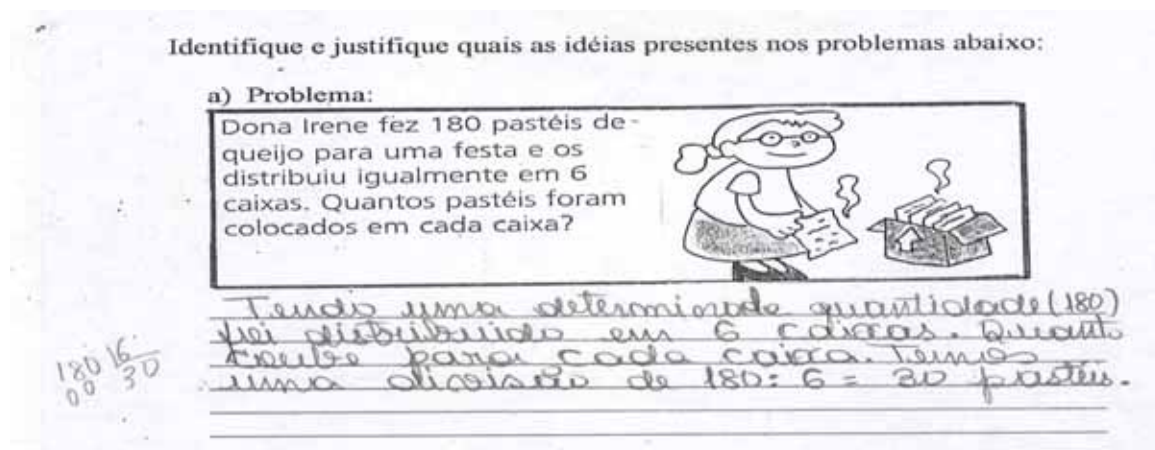 Identifique e justifique quais as idéias presentes nos problemas abaixo:
a) Problema:
Dona Irene fez 180 pastéis de
queijo para uma festa e os
distribuiu igualmente em 6
caixas. Quantos pastéis foram
colocados em cada caixa?
Tendo uma determinada quantidade (180)
foi distribuido em 6 caixas. Quanto
coube para cada caixa. Temos
uma divisão de 180: 6 = 30 pastéis.
180 6
00 30